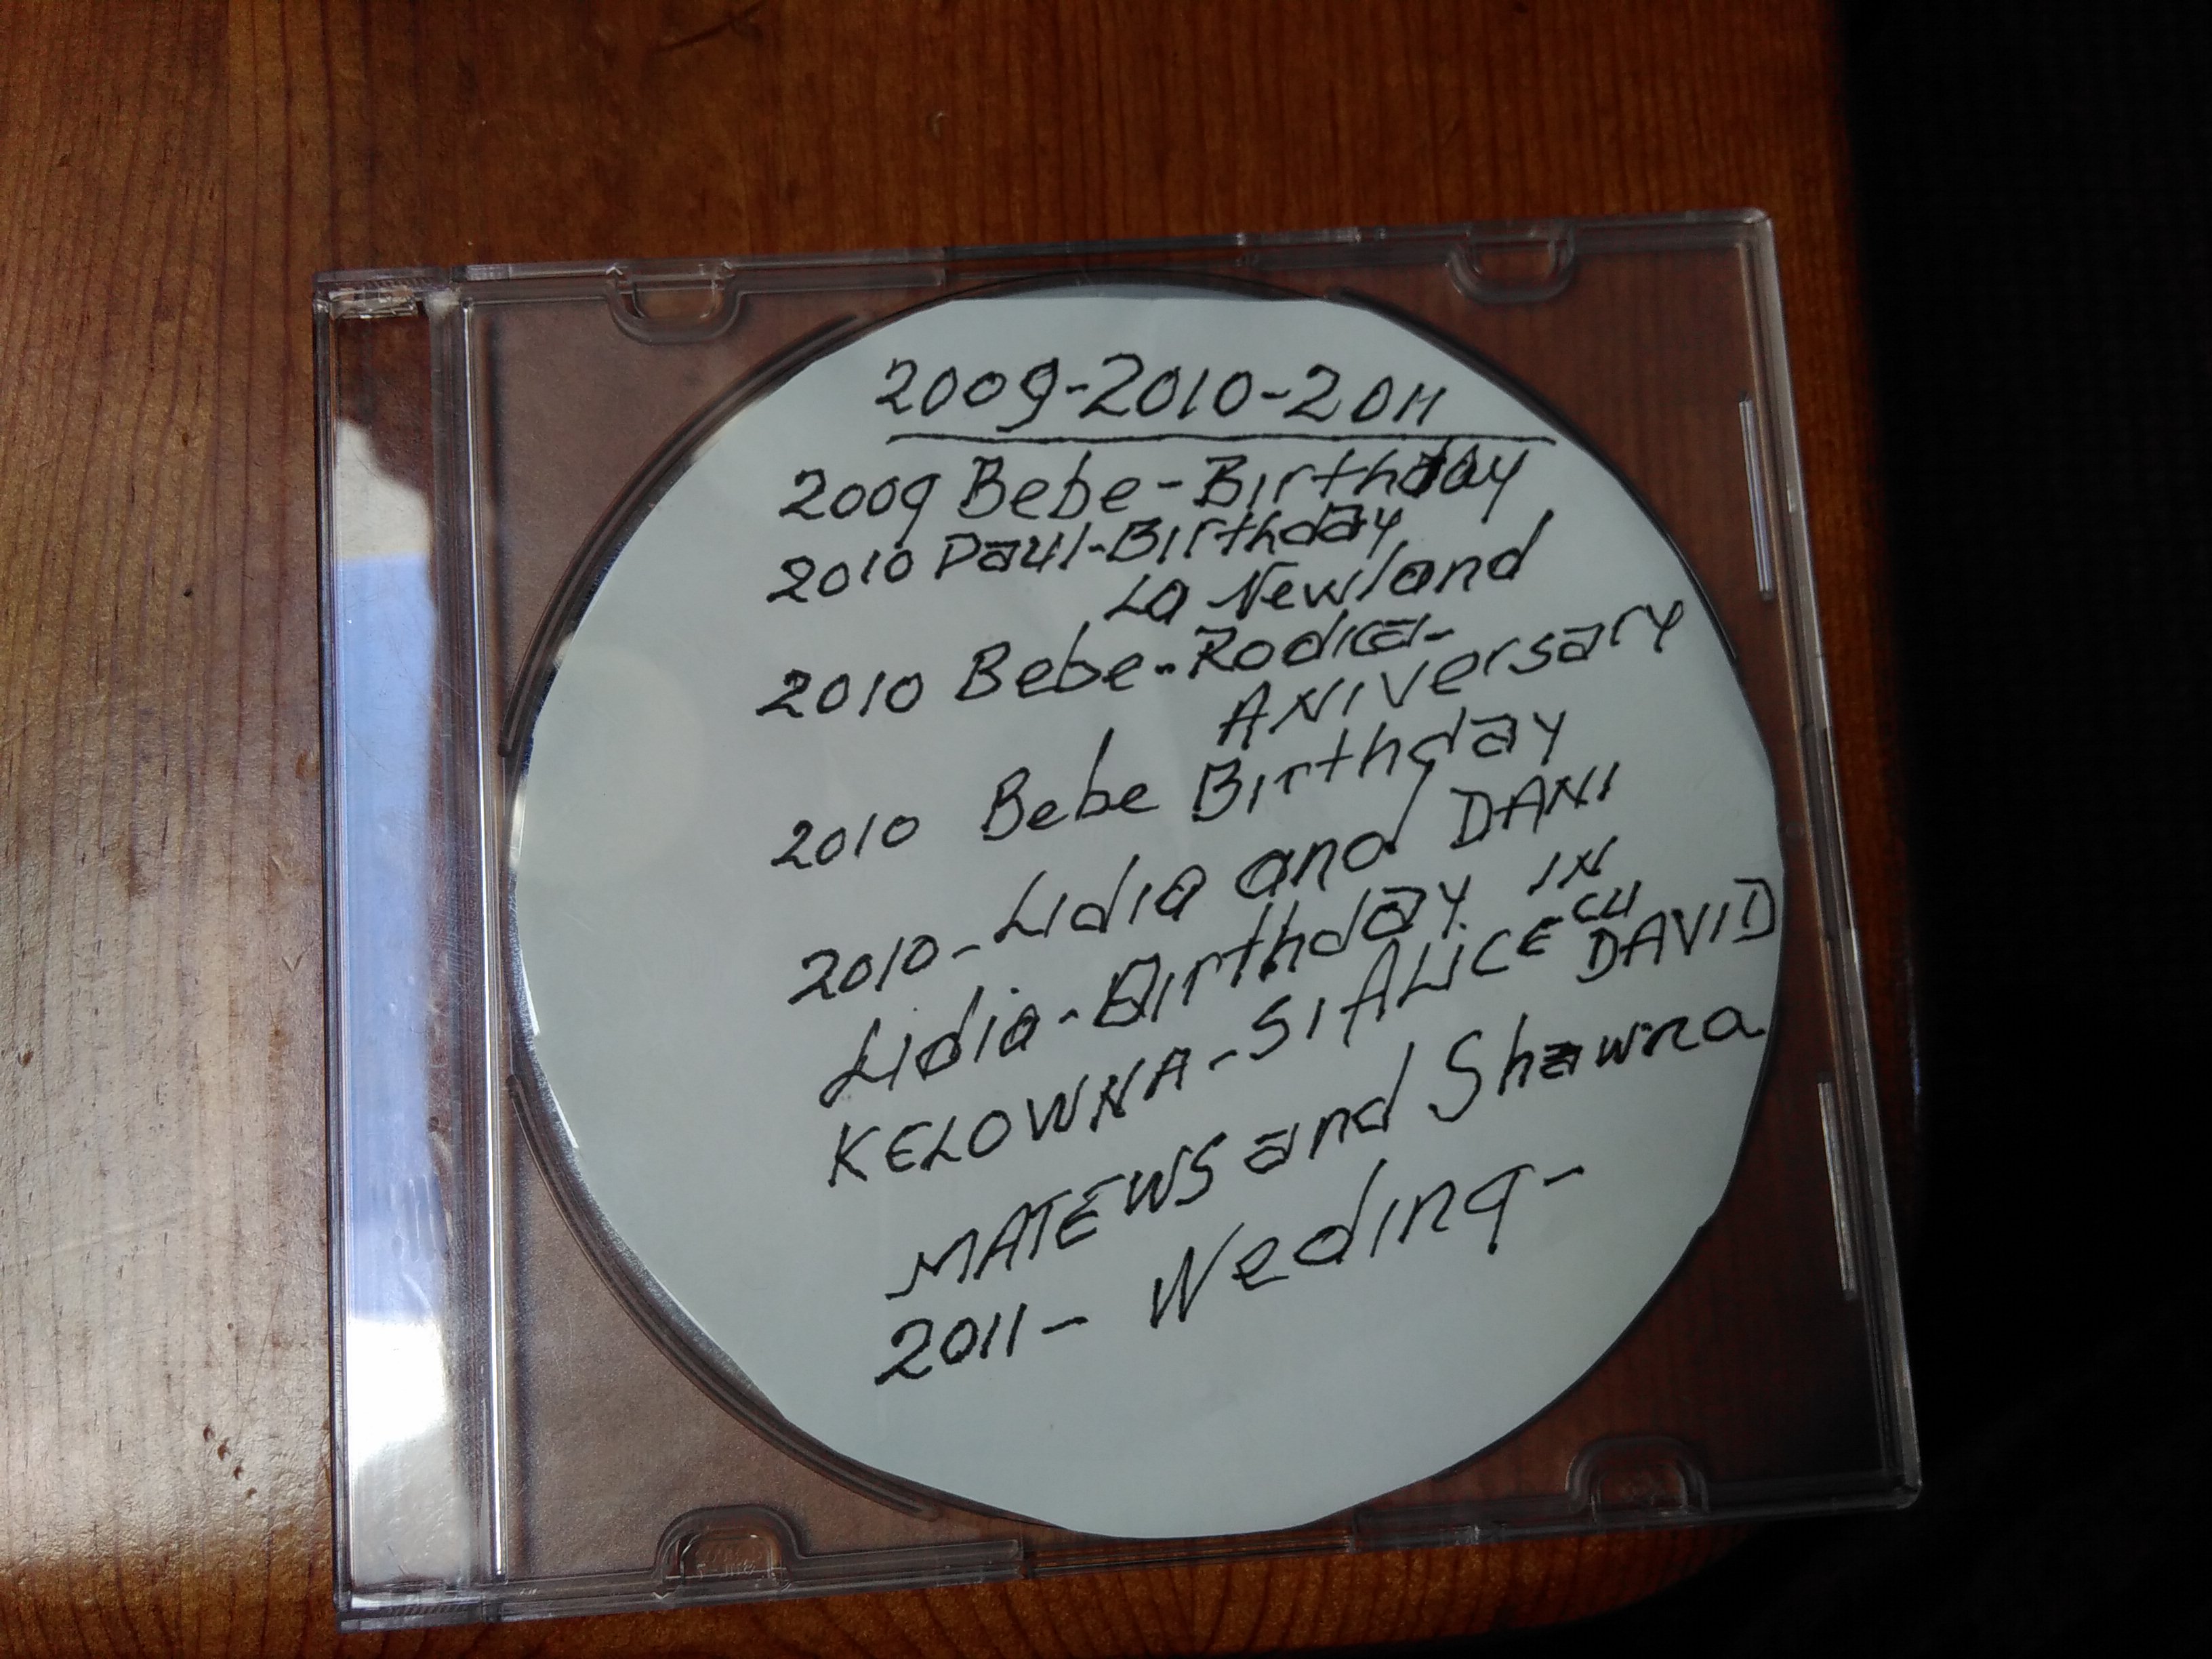 2009-2010-2011
2009 Bebe-Birthday
2010 Paul-Birthday
La Newland
2010 Bebe-Rodica-
ANIVersary
2010 Bebe Birthday
2010-Lidia and DANI
Lidia-Birthday IN
KELOWNA-SI ALICE CU
DAVID
MATEWS and Shawna
2011- Weding-